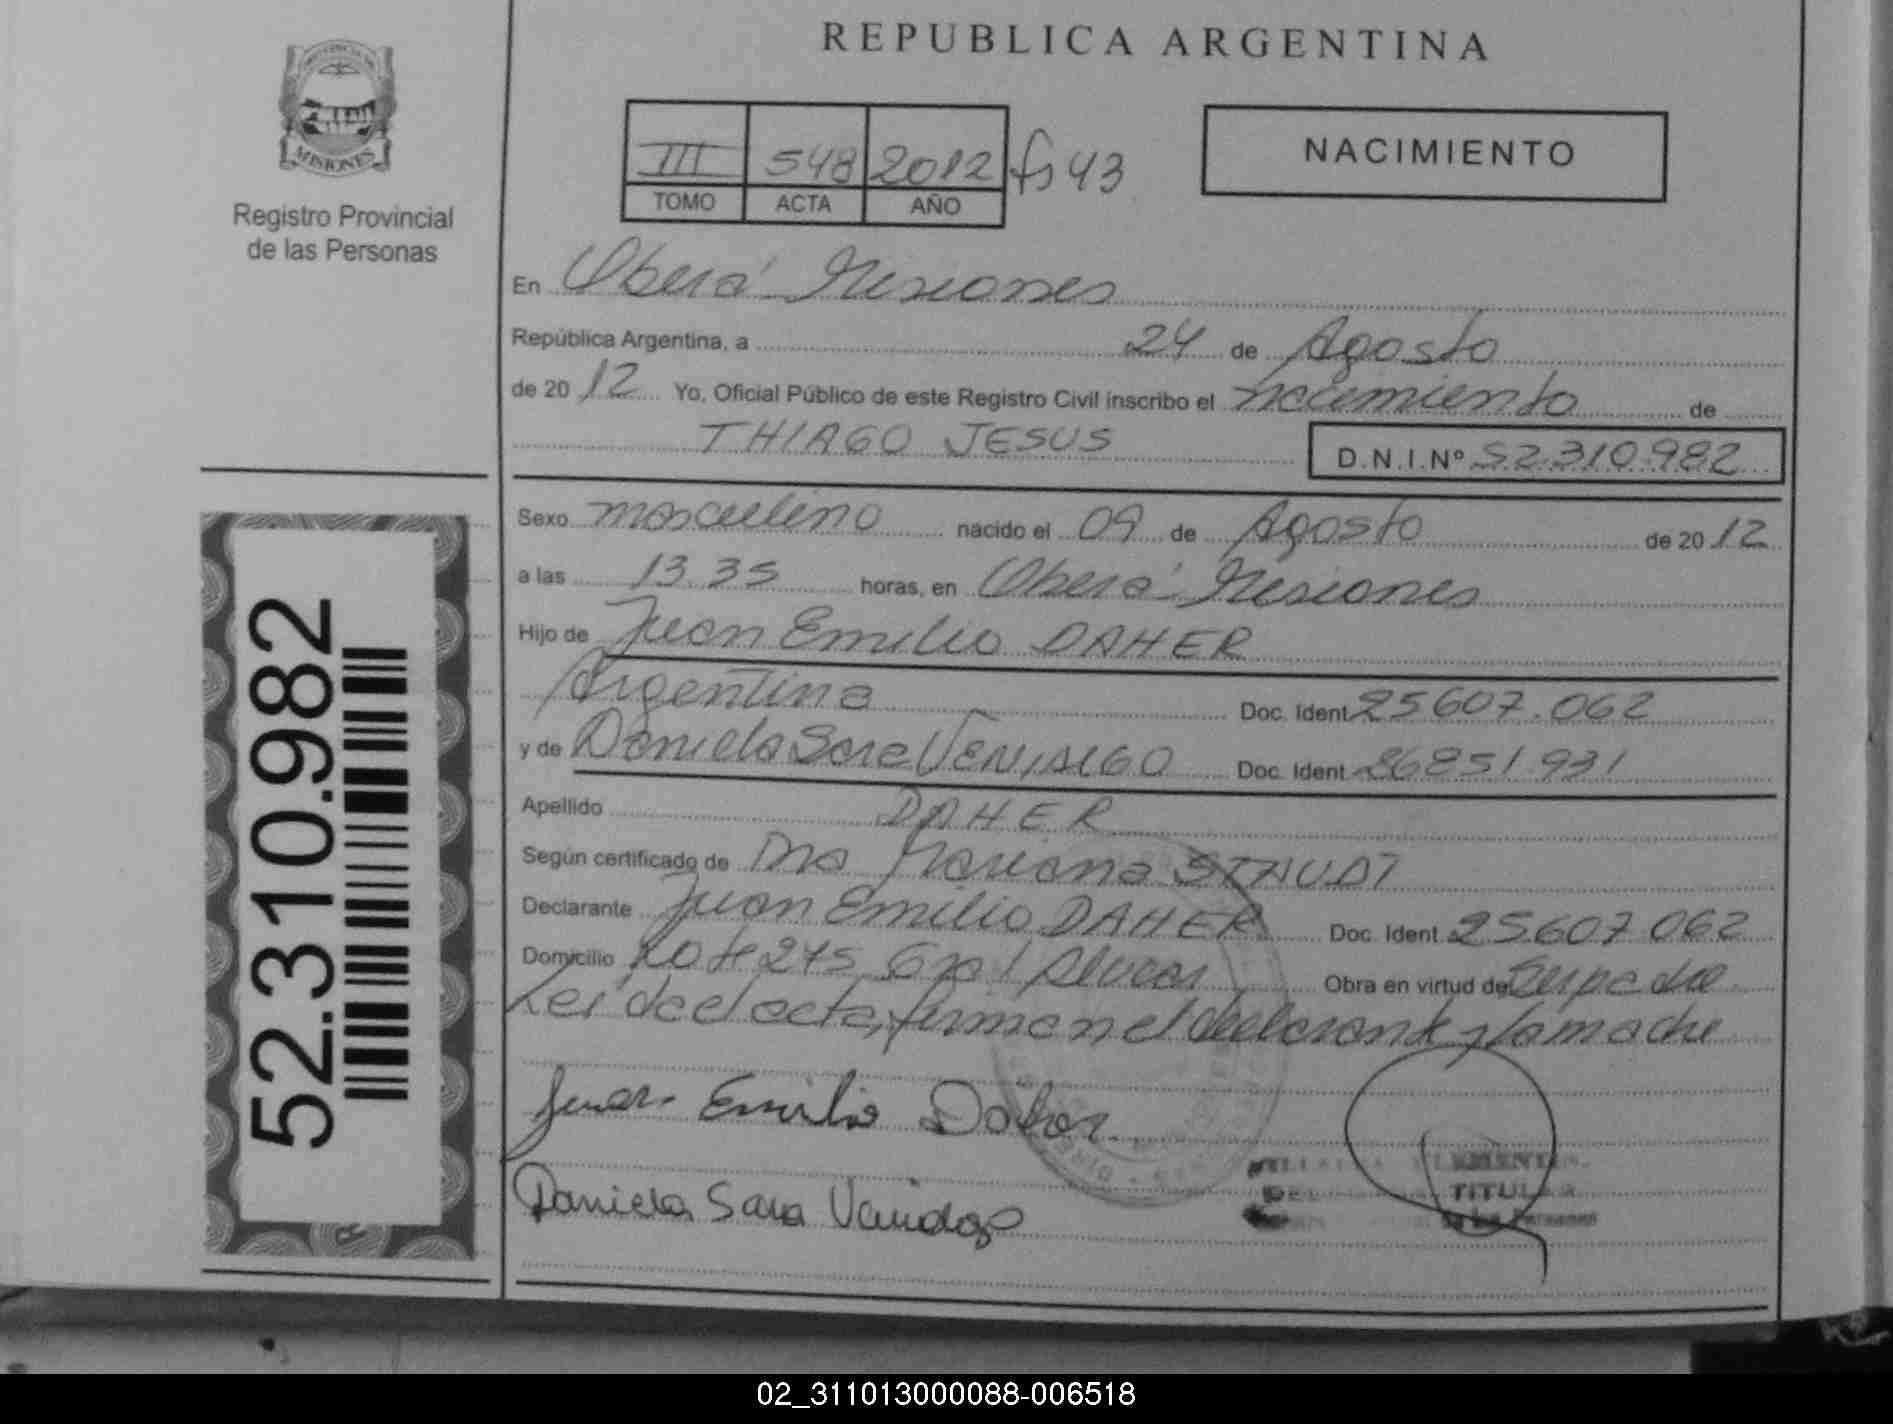 REPUBLICA ARGENTINA
MISIONES
Registro Provincial
de las Personas
III 548 2012 fs 43
TOMO ACTA AÑO
NACIMIENTO
En Oberá Misiones
República Argentina, a 24 de Agosto
de 20 12 Yo, Oficial Público de este Registro Civil inscribo el nacimiento de
THIAGO JESUS D.N.I.Nº 52.310.982
Sexo masculino nacido el 09 de Agosto de 20 12
a las 13.35 horas, en Oberá Misiones
Hijo de Juan Emilio DAHER
Argentina Doc. Ident. 25607.062
y de Daniela Sara Doc. Ident. 26851.931
Apellido DAHER
Según certificado de Dra Mariana STAUDT
Declarante Juan Emilio DAHER Doc. Ident. 25607.062
Domicilio Lote 275 Gral Alvear Obra en virtud de Su padre
Leída el acta, firman el declarante y la madre
Juan Emilio Daher
Daniela Sara
TITULAR
de las Personas
52.310.982
02_311013000088-006518